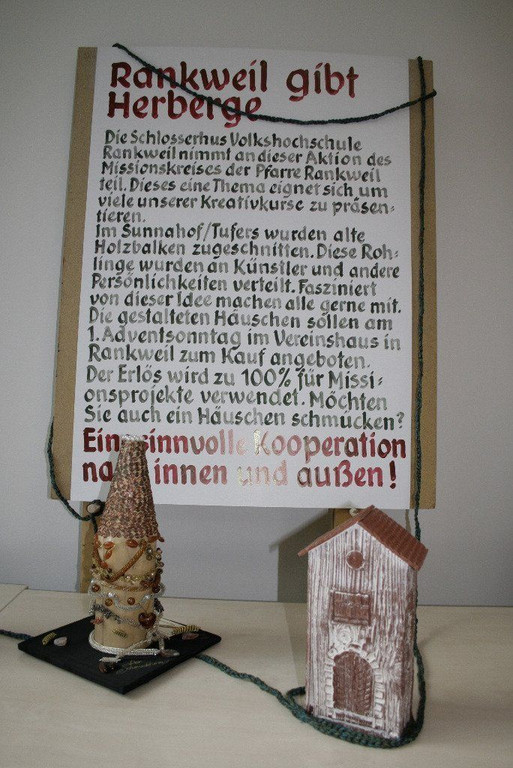 Rankweil gibt
Herberge
Die Schlosserhus Volkshochschule
Rankweil nimmt an dieser Aktion des
Missionskreises der Pfarre Rankweil
teil. Dieses eine Thema eignet sich um
viele unserer Kreativkurse zu präsen-
tieren.
Im Sunnahof/Tufers wurden alte
Holzbalken zugeschnitten. Diese Roh-
linge wurden an Künstler und andere
Persönlichkeiten verteilt. Fasziniert
von dieser Idee machen alle gerne mit.
Die gestalteten Häuschen sollen am
1. Adventsonntag im Vereinshaus in
Rankweil zum Kauf angeboten.
Der Erlös wird zu 100% für Missi-
onsprojekte verwendet. Möchten
Sie auch ein Häuschen schmücken?
Eine sinnvolle Kooperation
nach innen und außen!